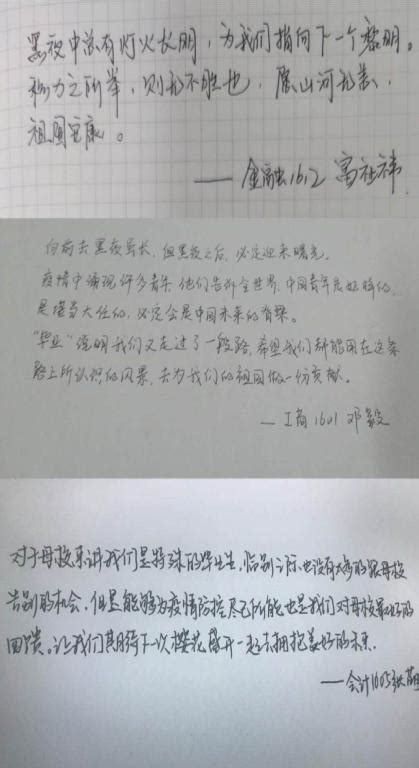 黑夜中总有灯火长明，为我们指向下一个黎明。
积力之所举，则无不胜也，愿山河无恙，
祖国安康。
——金融1612 高社祎
白前去黑夜虽长，但黑夜之后，必定迎来曙光。
疫情中涌现许多青年，他们告诉全世界，中国青年是好样的，
是堪当大任的，必定会是中国未来的脊梁。
“毕业”说明我们又走过了一段路，希望我们都能用在这条
路上所认识的风景，去为我们的祖国做一份贡献。
——工商1601 邓毅
对于母校来讲我们是特殊的毕业生，临别之际也没有太多的跟母校
告别的机会，但是能够为疫情防控尽己所能也是我们对母校最好的
回馈。让我们期待下一次樱花盛开一起去拥抱美好的未来。
——会计1605张